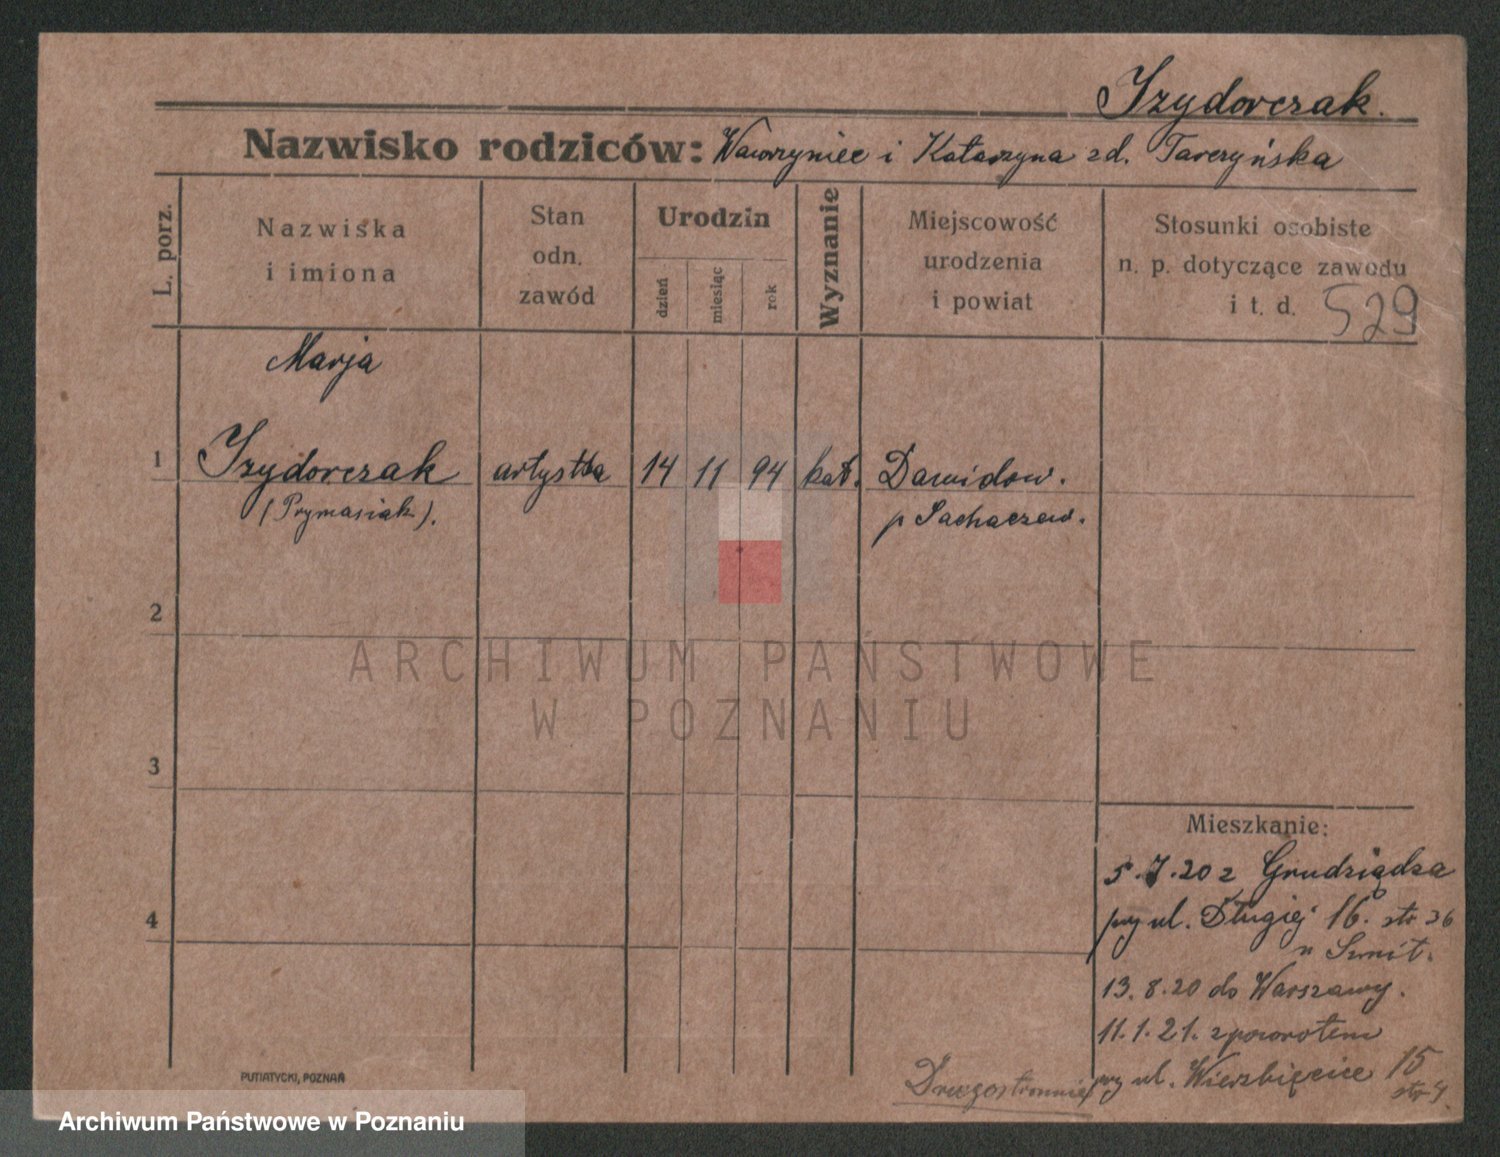 Izydorczak.
Nazwisko rodziców: Wawrzyniec i Katarzyna zd. Tarczyńska
L. porz.
Nazwiska
i imiona
Stan
odn.
zawód
Urodzin
dzień
miesiąc
rok
Wyznanie
Miejscowość
urodzenia
i powiat
Stosunki osobiste
n. p. dotyczące zawodu
i t. d.
529
Marja
1 Izydorczak artystka 14 11 94 kat. Dawidow.
(Prymasiak). p Sachaczew.
2
ARCHIWUM PAŃSTWOWE
W POZNANIU
3
Mieszkanie:
5.7.20 z Grudziądza
4
przy ul. Długiej 16. str 36
u Szmit.
13.8.20 do Warszawy.
11.1.21. zpowrotem
przy ul. Wierzbięcice 15
str 4
Drugostronnie
PUTIATYCKI, POZNAŃ
Archiwum Państwowe w Poznaniu